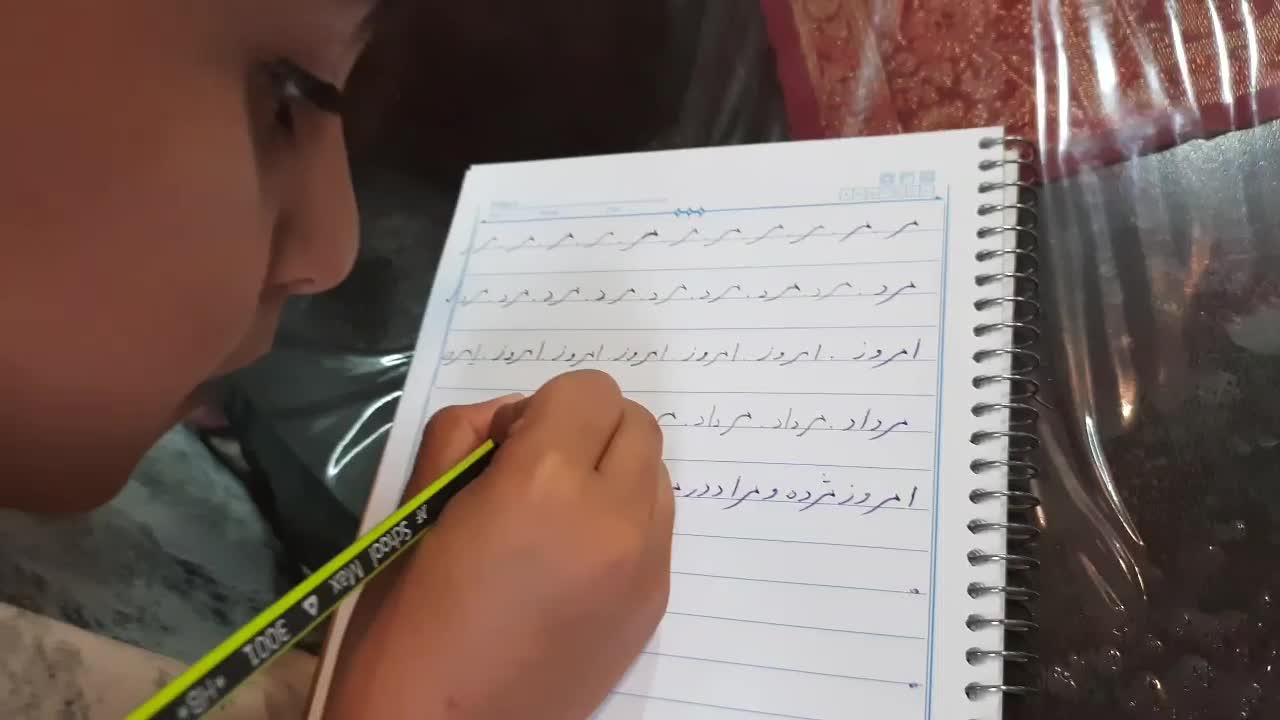 مر مر مر مر مر مر مر مر مر مر مر
مرد . مرد . مرد . مرد . مرد . مرد . مرد . مرد . مرد
امروز . امروز . امروز . امروز . امروز . امروز . امرو
مرداد . مرداد . مرداد .
امروز مژده و مراد در
School Max 3001 HB